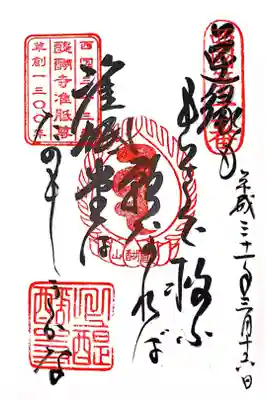 逆縁も
もらさで救ふ
願なれば
准胝堂は
たのもしきかな
平成三十一年三月十六日
西国三十三
醍醐寺准胝尊
草創一三〇〇年